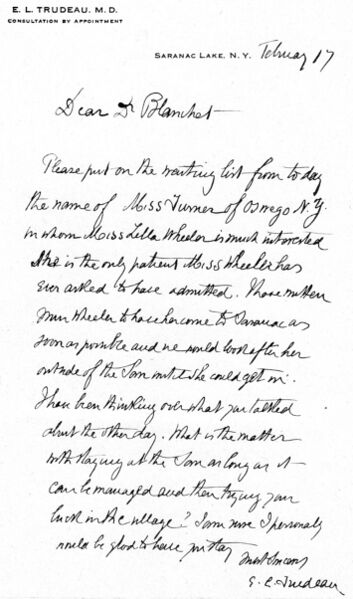 E. L. TRUDEAU, M. D.
CONSULTATION BY APPOINTMENT
SARANAC LAKE, N. Y. February 17
Dear Dr Blanchet
Please put on the waiting list from today
the name of Miss Turner of Oswego N.Y.
in whom Miss Lella Wheeler is much interested
She is the only patient Miss Wheeler has
ever asked to have admitted. I have written
Miss Wheeler to have her come to Saranac as
soon as possible and we would look after her
outside of the San until she could get in.
I have been thinking over what you talked
about the other day. What is the matter
with staying at the San as long as it
can be managed and then trying your
luck in the village? I am sure I personally
would be glad to have you stay
Most Sincerely
E. L. Trudeau